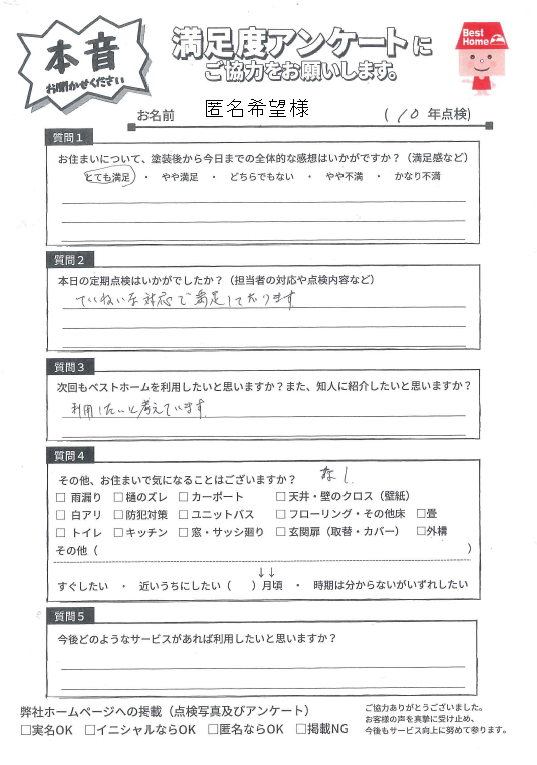 本音
お聞かせください
満足度アンケートに
ご協力をお願いします。
Best Home
お名前 匿名希望様 ( 10 年点検)
質問1
お住まいについて、塗装後から今日までの全体的な感想はいかがですか？（満足感など）
とても満足 ・ やや満足 ・ どちらでもない ・ やや不満 ・ かなり不満
質問2
本日の定期点検はいかがでしたか？（担当者の対応や点検内容など）
ていねいな対応で満足しております
質問3
次回もベストホームを利用したいと思いますか？また、知人に紹介したいと思いますか？
利用したいと考えています
質問4
その他、お住まいで気になることはございますか？ なし
□ 雨漏り □ 樋のズレ □ カーポート □ 天井・壁のクロス（壁紙）
□ 白アリ □ 防犯対策 □ ユニットバス □ フローリング・その他床 □畳
□ トイレ □ キッチン □ 窓・サッシ廻り □ 玄関扉（取替・カバー） □外構
その他（ ）
↓↓
すぐしたい ・ 近いうちにしたい（ ）月頃 ・ 時期は分からないがいずれしたい
質問5
今後どのようなサービスがあれば利用したいと思いますか？
弊社ホームページへの掲載（点検写真及びアンケート）
□実名OK □イニシャルならOK □匿名ならOK □掲載NG
ご協力ありがとうございました。
お客様の声を真摯に受け止め、
今後もサービス向上に努めて参ります。